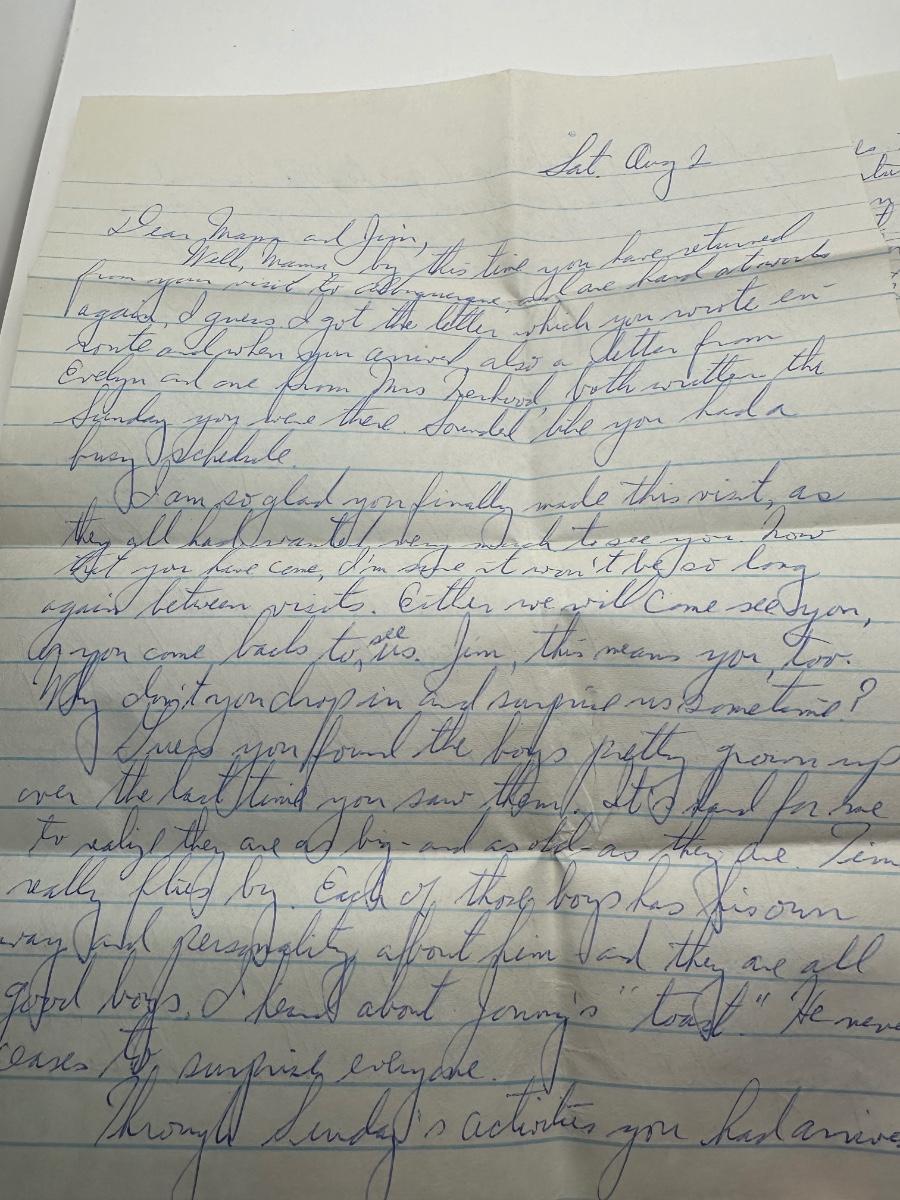 Sat. Aug 2
Dear Mama and Jim,
Well, Mama, by this time you have returned
from your visit to Albuquerque and are hard at work
again, I guess. I got the letter which you wrote en-
route and when you arrived, also a letter from
Evelyn and one from Mrs both written the
Sunday you were there. Sounded like you had a
busy schedule.
I am so glad you finally made this visit, as
they all had wanted very much to see you. Now
that you have come, I'm sure it won't be so long
again between visits. Either we will come see you,
or you come back to see us. Jim, this means you, too.
Why don't you drop in and surprise us sometime?
Guess you found the boys pretty grown up
over the last time you saw them. It's hard for me
to realize they are as big - and as old - as they are. Tim
really flies by. Each of those boys has his own
way and personality about him and they are all
good boys. I heard about "toast." He neve
ceases to surprise everyone.
Through Sunday's activities you had arrive